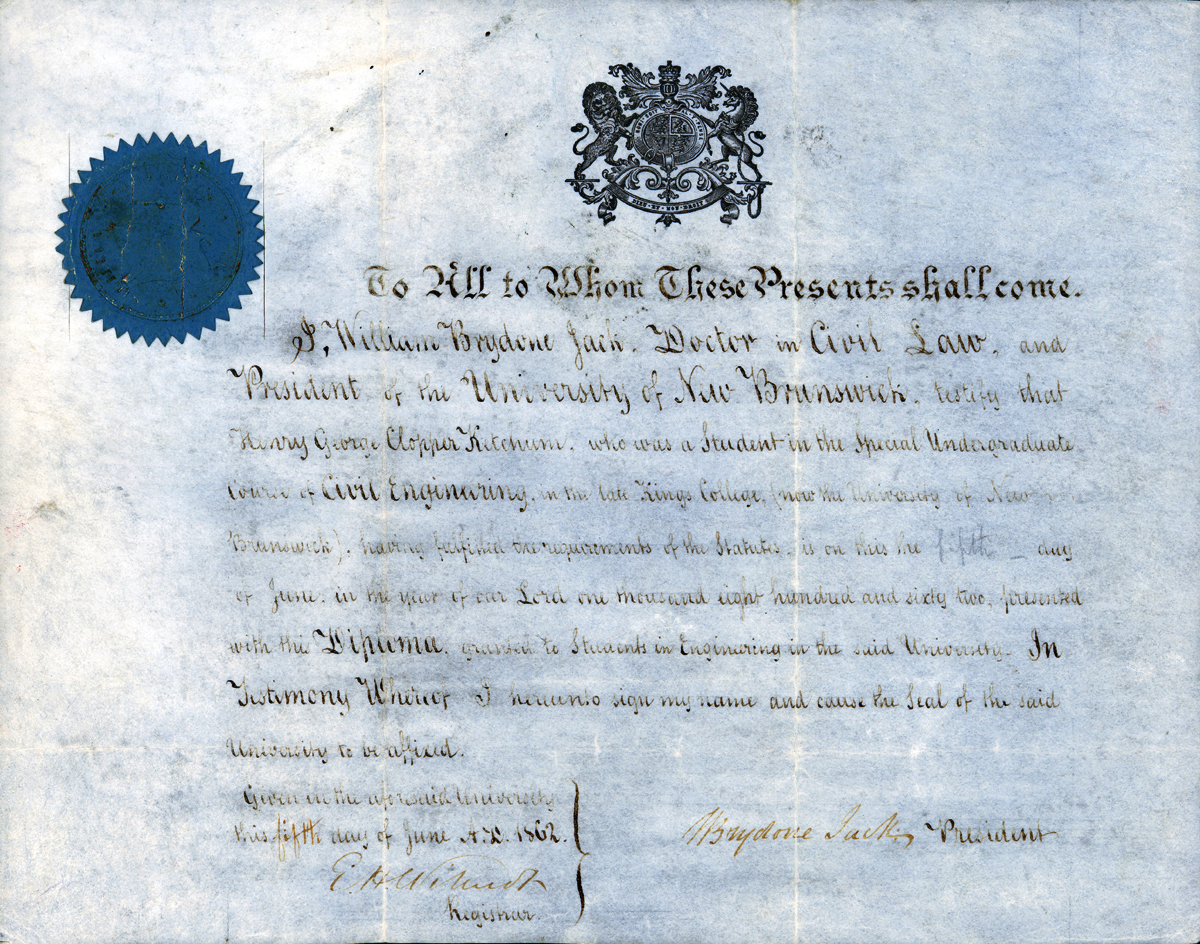 HONI SOIT QUI MAL Y PENSE
DIEU ET MON DROIT
To All to Whom These Presents shall come.
I, William Brydone Jack. Doctor in Civil Law, and
President of the University of New Brunswick, testify that
Henry George Clopper Ketchum, who was a Student in the Special Undergraduate
Course of Civil Engineering, in the late Kings College, (now the University of New
Brunswick), having fulfilled the requirements of the Statutes, is on this the fifth day
of June, in the year of our Lord one thousand eight hundred and sixty two, presented
with the Diploma, granted to Students in Engineering in the said University. In
Testimony Whereof I hereunto sign my name and cause the Seal of the said
University to be affixed.
Given in the aforesaid University
this fifth day of June A.D. 1862.
Brydone Jack, President
E. H. Wilmot
Registrar.